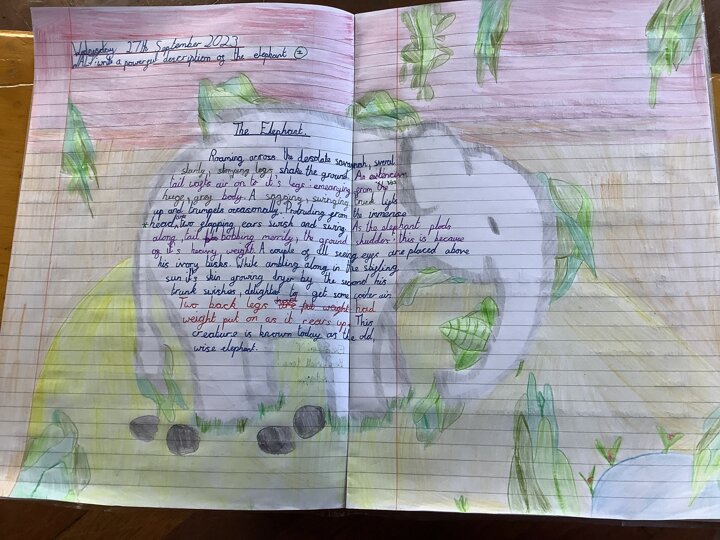 Wednesday 27th September 2023
WALT: write a powerful description of the elephant
The Elephant.
Roaming across the desolate savannah, several
sturdy, stomping legs shake the ground. An extensive
tail wafts air on to it's legs: emearging from the
huge, grey body. A snoping, swinging trunk lifts
up and trumpets occasionally. Protruding from the immense
head, two flapping ears swish and swing. As the elephant plods
along, tail bobbing merrily, the ground shudders: this is because
of it's heavy weight. A couple of all seeing eyes are placed above
his ivory tusks. While ambling along in the
sun it's skin growing dryer by the second his
trunk swishes, delighted to get some cooler air.
Two back legs had
weight put on as it rears up. This
creature is known today as the old,
wise elephant.